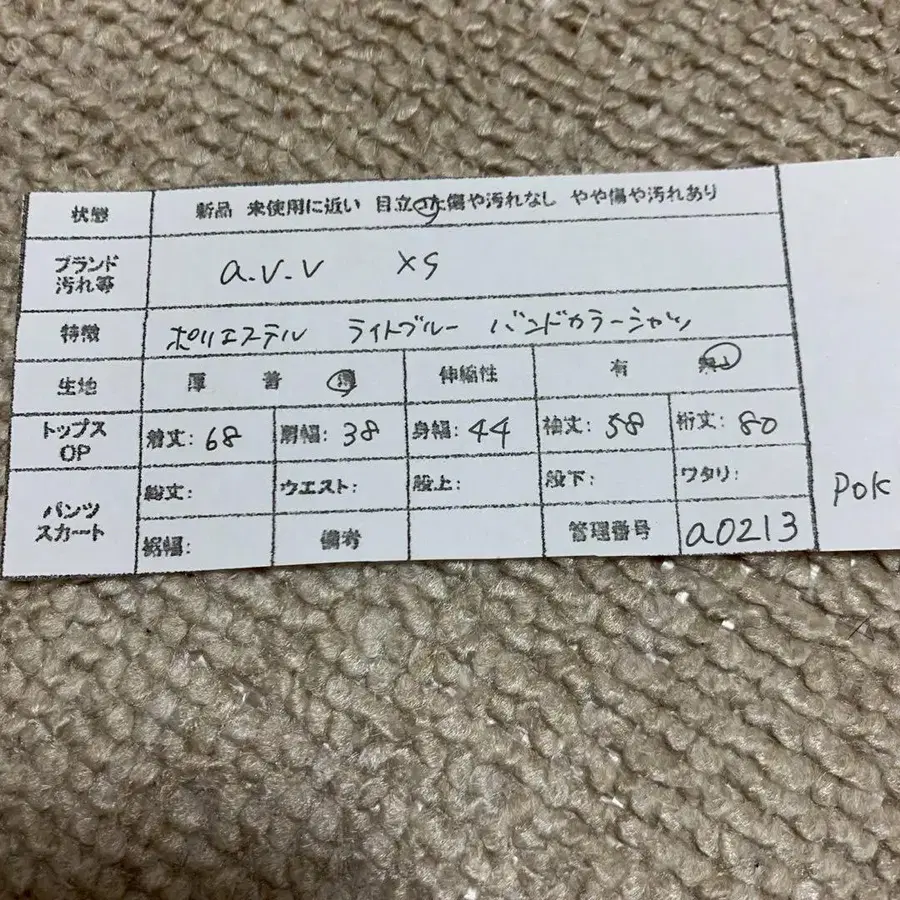 状態 新品 未使用に近い 目立った傷や汚れなし やや傷や汚れあり
ブランド a.v.v XS
汚れ等
特徴 ポリエステル ライトブルー バンドカラーシャツ
生地 厚 普 薄 伸縮性 有 無
トップス 着丈:68 肩幅:38 身幅:44 袖丈:58 裄丈:80
OP
総丈: ウエスト:股上: 股下: ワタリ:
パンツ
スカート
裾幅: 備考 管理番号 a0213
POK